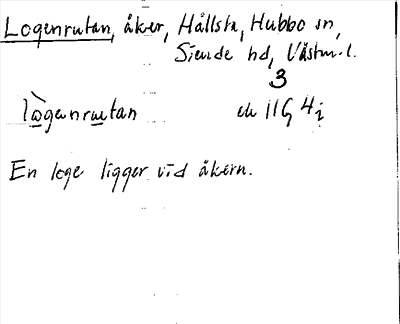 Logenrutan, åker, Hållsta, Hubbo sn,
Siende hd, Västm.l.
3
lògenrutan ek 11G 4i
En loge ligger vid åkern.